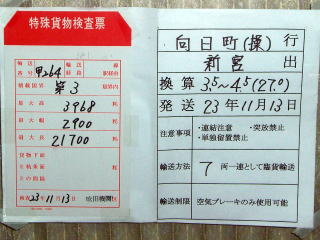 特殊貨物検査票
輸送番号 甲264 輸送経路 線 駅経由
積載限界 第3 限界内
最大高 3968 粍
最大幅 2900 粍
最大長 21700 粍
貨物下部
検査 23年11月13日 吹田機関区
向日町(操) 行
新宮 出
換算 3.5~4.5(27.0)
発送 23年11月13日
注意事項 ・連結注意 ・突放禁止
・単独留置禁止
輸送方法 7 両一連として臨貨輸送
輸送制限 空気ブレーキのみ使用可能